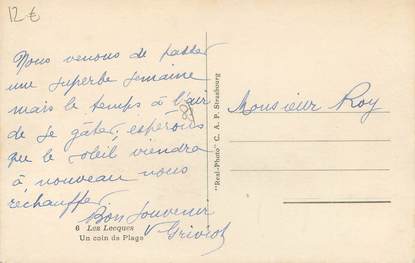 12€
Nous venons de passer
une superbe semaine
mais le temps à l'air
de se gâter, espérons
que le soleil viendra
à nouveau nous
réchauffer.
Bon Souvenir
6 Les Lecques
Un coin de Plage
"Real-Photo" C. A. P. Strasbourg
Monsieur Roy